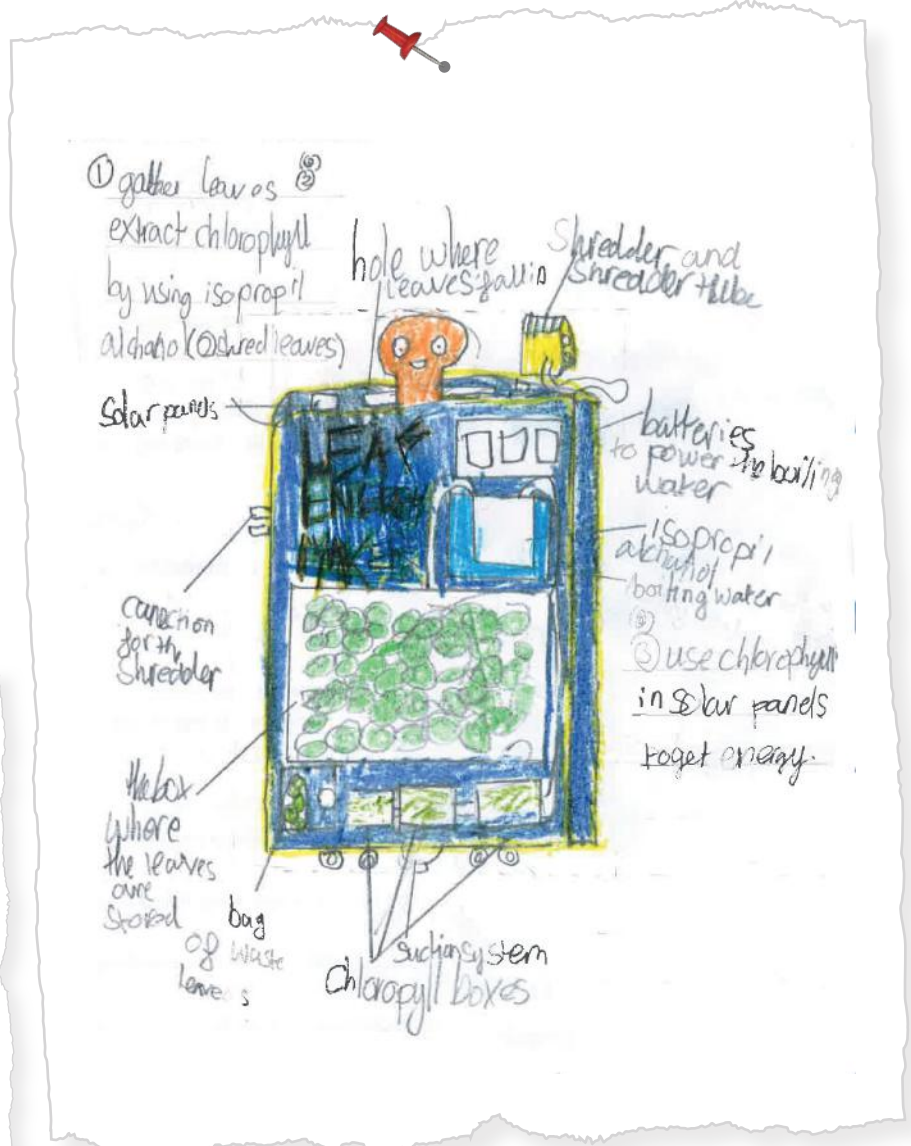 ① gather leaves ⑥
②
extract chlorophyll
by using isopropil
alchahol (② shred leaves)
hole where
leaves fall in
Shredder and
Shredder tube
solar panels
LEAF
ENERGY
MAKER
batteries
to power the boiling
water
isopropil
alchahol
boiling water
conection
for the
Shredder
③ use chlorophyll
in solar panels
to get energy.
the box
where
the leaves
are
stored
bag
of waste
leaves
suction system
Chloropyll boxes